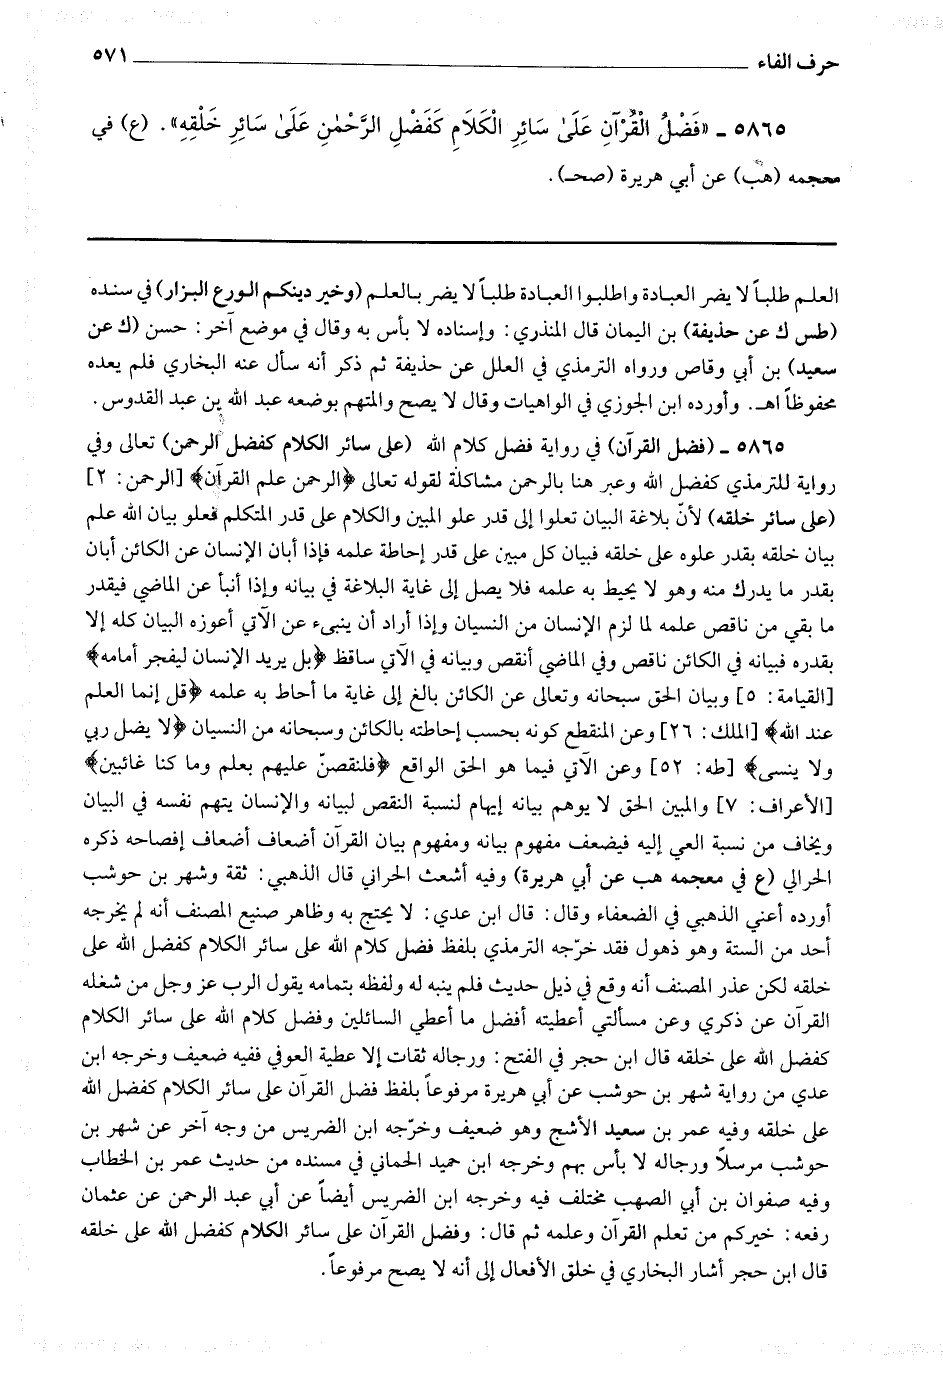 حرف الفاء ٥٧١
٥٨٦٥ ـ «فَضْلُ الْقُرْآنِ عَلَىٰ سَائِرِ الْكَلَامِ كَفَضْلِ الرَّحْمٰنِ عَلَىٰ سَائِرِ خَلْقِهِ». (ع) في
معجمه (هب) عن أبي هريرة (صحـ).
العلم طلباً لا يضر العبادة واطلبوا العبادة طلباً لا يضر بالعلم (وخير دينكم الورع البزار) في سنده
(طس ك عن حذيفة) بن اليمان قال المنذري: وإسناده لا بأس به وقال في موضع آخر: حسن (ك عن
سعيد) بن أبي وقاص ورواه الترمذي في العلل عن حذيفة ثم ذكر أنه سأل عنه البخاري فلم يعده
محفوظاً اهـ. وأورده ابن الجوزي في الواهيات وقال لا يصح والمتهم بوضعه عبد الله بن عبد القدوس.
٥٨٦٥ ـ (فضل القرآن) في رواية فضل كلام الله (على سائر الكلام كفضل الرحمن) تعالى وفي
رواية للترمذي كفضل الله وعبر هنا بالرحمن مشاكلة لقوله تعالى ﴿الرحمن علم القرآن﴾ [الرحمن: ٢]
(على سائر خلقه) لأنّ بلاغة البيان تعلوا إلى قدر علو المبين والكلام على قدر المتكلم فعلو بيان الله علم
بيان خلقه بقدر علوه على خلقه فبيان كل مبين على قدر إحاطة علمه فإذا أبان الإنسان عن الكائن أبان
بقدر ما يدرك منه وهو لا يحيط به علمه فلا يصل إلى غاية البلاغة في بيانه وإذا أنبأ عن الماضي فيقدر
ما بقي من ناقص علمه لما لزم الإنسان من النسيان وإذا أراد أن ينبىء عن الآتي أعوزه البيان كله إلا
بقدره فبيانه في الكائن ناقص وفي الماضي أنقص وبيانه في الآتي ساقظ ﴿بل يريد الإنسان ليفجر أمامه﴾
[القيامة: ٥] وبيان الحق سبحانه وتعالى عن الكائن بالغ إلى غاية ما أحاط به علمه ﴿قل إنما العلم
عند الله﴾ [الملك: ٢٦] وعن المنقطع كونه بحسب إحاطته بالكائن وسبحانه من النسيان ﴿لا يضل ربي
ولا ينسى﴾ [طه: ٥٢] وعن الآتي فيما هو الحق الواقع ﴿فلنقصنّ عليهم بعلم وما كنا غائبين﴾
[الأعراف: ٧] والمبين الحق لا يوهم بيانه إيهام لنسبة النقص لبيانه والإنسان يتهم نفسه في البيان
ويخاف من نسبة العي إليه فيضعف مفهوم بيانه ومفهوم بيان القرآن أضعاف أضعاف إفصاحه ذكره
الحرالي (ع في معجمه هب عن أبي هريرة) وفيه أشعث الحراني قال الذهبي: ثقة وشهر بن حوشب
أورده أعني الذهبي في الضعفاء وقال: قال ابن عدي: لا يحتج به وظاهر صنيع المصنف أنه لم يخرجه
أحد من الستة وهو ذهول فقد خرّجه الترمذي بلفظ فضل كلام الله على سائر الكلام كفضل الله على
خلقه لكن عذر المصنف أنه وقع في ذيل حديث فلم ينبه له ولفظه بتمامه يقول الرب عز وجل من شغله
القرآن عن ذكري وعن مسألتي أعطيته أفضل ما أعطي السائلين وفضل كلام الله على سائر الكلام
كفضل الله على خلقه قال ابن حجر في الفتح: ورجاله ثقات إلا عطية العوفي ففيه ضعيف وخرجه ابن
عدي من رواية شهر بن حوشب عن أبي هريرة مرفوعاً بلفظ فضل القرآن على سائر الكلام كفضل الله
على خلقه وفيه عمر بن سعيد الأشج وهو ضعيف وخرّجه ابن الضريس من وجه آخر عن شهر بن
حوشب مرسلاً ورجاله لا بأس بهم وخرجه ابن حميد الحماني في مسنده من حديث عمر بن الخطاب
وفيه صفوان بن أبي الصهب مختلف فيه وخرجه ابن الضريس أيضاً عن أبي عبد الرحمن عن عثمان
رفعه: خيركم من تعلم القرآن وعلمه ثم قال: وفضل القرآن على سائر الكلام كفضل الله على خلقه
قال ابن حجر أشار البخاري في خلق الأفعال إلى أنه لا يصح مرفوعاً.